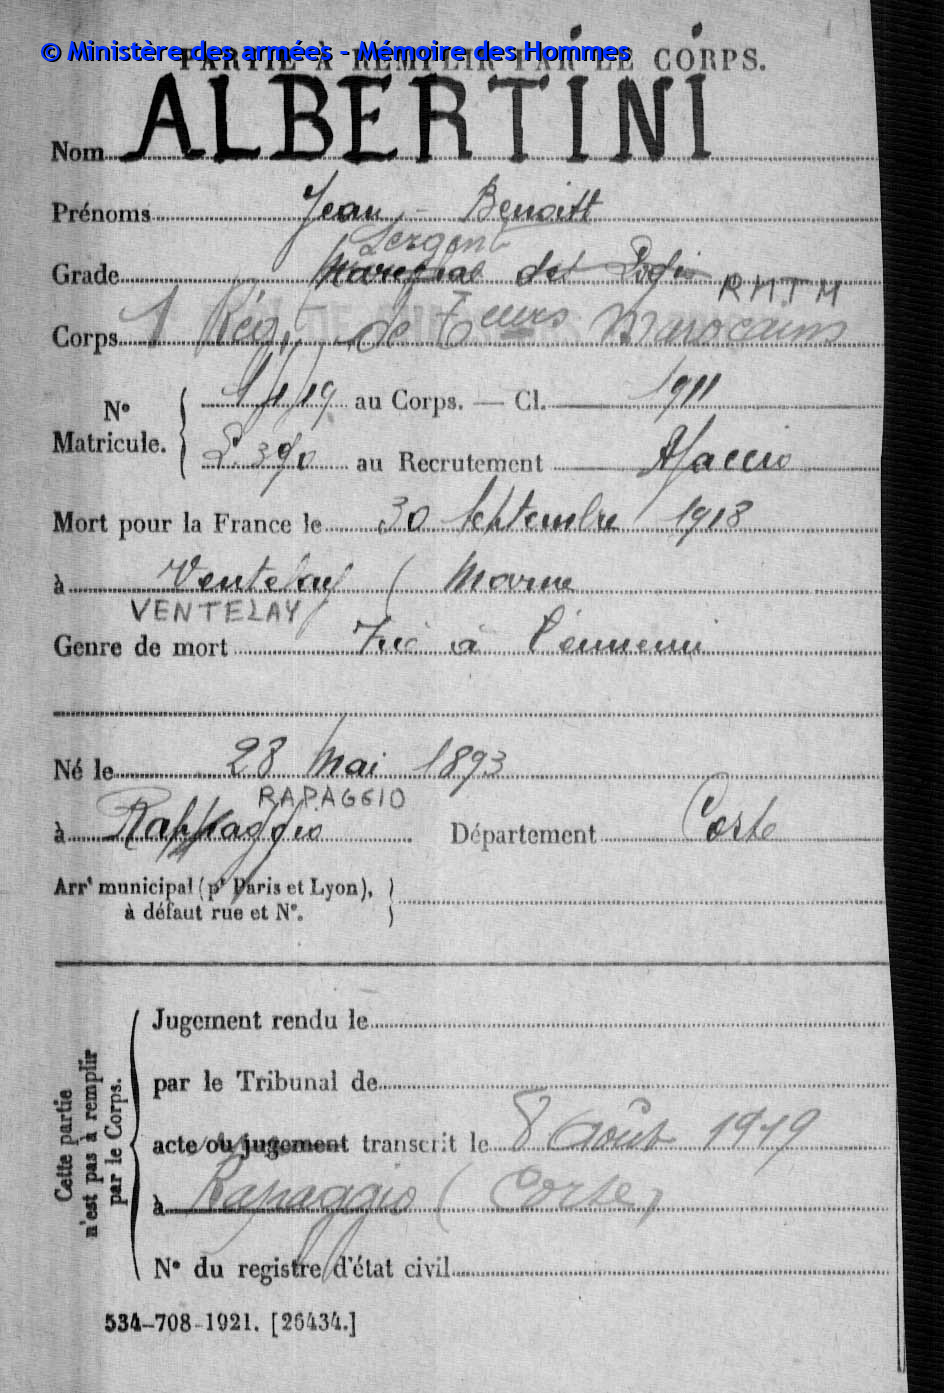 © Ministère des armées - Mémoire des Hommes
PARTIE À REMPLIR PAR LE CORPS.
Nom ALBERTINI
Prénoms Jean - Benoitt
Sergent
Grade Maréchal des Logis
RMTM
Corps 1 Rég. de Teurs Marocains
N° Matricule.
au Corps. — Cl. 1911
au Recrutement Ajaccio
Mort pour la France le 30 Septembre 1918
à Ventelay ( Marne
VENTELAY
Genre de mort Tué à l'ennemi
Né le 28 Mai 1893
RAPAGGIO
à Rappaggio Département Corse
Arrt municipal (pr Paris et Lyon),
à défaut rue et N°.
Cette partie
n'est pas à remplir
par le Corps.
Jugement rendu le
par le Tribunal de
acte ou jugement transcrit le 8 Août 1919
à Rapaggio ( Corse )
N° du registre d'état civil
534-708-1921. [26434.]